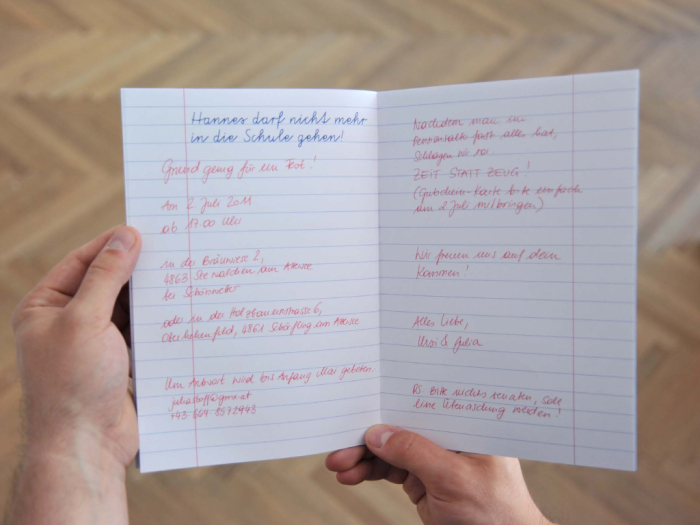 Hannes darf nicht mehr
in die Schule gehen!
Grund genug für ein Fest!
Am 2. Juli 2011
ab 17.00 Uhr
in der Bräuwiese 2,
4863 Seewalchen am Attersee
bei Schönwetter
oder in der Holzbauernstrasse 6,
Oberhehenfeld, 4861 Schörfling am Attersee
Um Antwort wird bis Anfang Mai gebeten.
+43 664 8572943
Nachdem man im
Pensionsalter fast alles hat,
schlagen wir vor:
ZEIT STATT ZEUG!
(Gutschein-Karte bitte einfach
am 2. Juli mitbringen)
Wir freuen uns auf dein
Kommen!
Alles Liebe,
& Julia
PS: Bitte nichts verraten, soll
eine Überraschung werden!